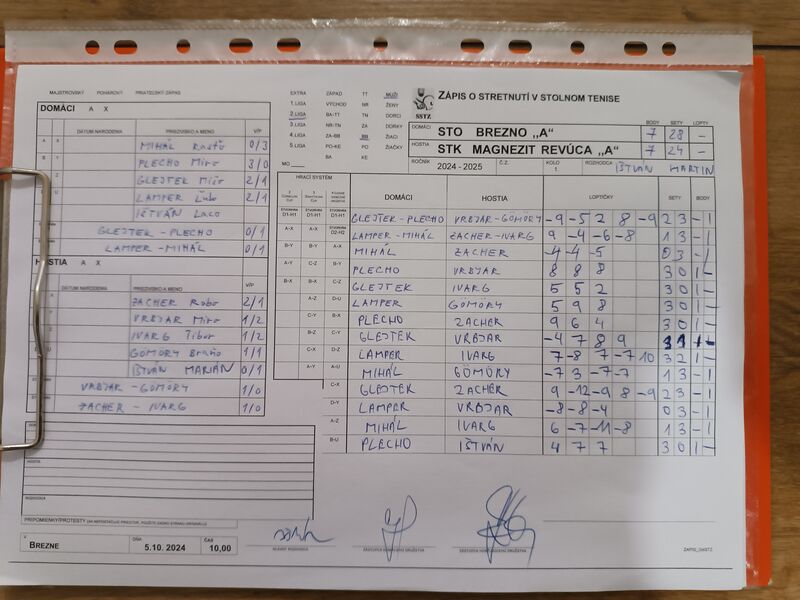 MAJSTROVSKÝ POHÁROVÝ PRIATEĽSKÝ ZÁPAS
DOMÁCI A X
DÁTUM NARODENIA PRIEZVISKO A MENO V/P
A X MIHÁL 0/3
B Y PLECHO Miro 3/0
GLEJTEK Miro 2/1
LAMPER Ľubo 2/1
IŠTVÁN Laco
GLEJTEK - PLECHO 0/1
LAMPER - MIHÁL 0/1
HOSTIA A X
DÁTUM NARODENIA PRIEZVISKO A MENO V/P
ZACHER Robo 2/1
VRBJAR Miro 1/2
IVARG Tibor 1/2
GÖMÖRY Braňo 1/1
IŠTVÁN MARIÁN 0/1
VRBJAR - GÖMÖRY 1/0
ZACHER - IVARG 1/0
HOSTIA
ROZHODCA
PRIPOMIENKY/PROTESTY
V BREZNE DŇA 5.10.2024 ČAS 10,00
EXTRA ZÁPAD TT MUŽI
1. LIGA VÝCHOD NR ŽENY
2. LIGA BA-TT TN DORCI
3. LIGA NR-TN ZA DORKY
4. LIGA ZA-BB BB ŽIACI
5. LIGA PO-KE PO ŽIAČKY
MO BA KE
SSTZ
ZÁPIS O STRETNUTÍ V STOLNOM TENISE
BODY SETY LOPTY
DOMÁCI STO BREZNO „A" 7 28 -
HOSTIA STK MAGNEZIT REVÚCA „A" 7 24 -
ROČNÍK 2024 - 2025 Č.Z. KOLO 1. ROZHODCA IŠTVÁN MARTIN
HRACÍ SYSTÉM
DOMÁCI HOSTIA LOPTIČKY SETY BODY
D1-H1 D1-H1 D1-H1 GLEJTEK - PLECHO VRBJAR - GÖMÖRY -9 -5 2 8 -9 2 3 - 1
A-X A-X D2-H2 LAMPER - MIHÁL ZACHER - IVARG 9 -4 -6 -8 1 3 - 1
B-Y B-Y A-X MIHÁL ZACHER -4 -4 -5 0 3 - 1
A-Y C-Z B-Y PLECHO VRBJAR 8 8 8 3 0 1 -
B-X B-X C-Z GLEJTEK IVARG 5 5 2 3 0 1 -
A-Z D-U LAMPER GÖMÖRY 5 9 8 3 0 1 -
C-Y B-X PLECHO ZACHER 9 6 4 3 0 1 -
B-Z C-Y GLEJTEK VRBJAR -4 7 8 9 3 1 1 -
C-X D-Z LAMPER IVARG 7 -8 7 -7 10 3 2 1 -
A-Y A-U MIHÁL GÖMÖRY -7 3 -7 -7 1 3 - 1
C-X GLEJTEK ZACHER 9 -12 -9 8 -9 2 3 - 1
D-Y LAMPER VRBJAR -8 -8 -4 0 3 - 1
A-Z MIHÁL IVARG 6 -7 -11 -8 1 3 - 1
B-U PLECHO IŠTVÁN 4 7 7 3 0 1 -
HLAVNÝ ROZHODCA
ZÁSTUPCA DOMÁCEHO DRUŽSTVA
ZÁSTUPCA HOSŤUJÚCEHO DRUŽSTVA